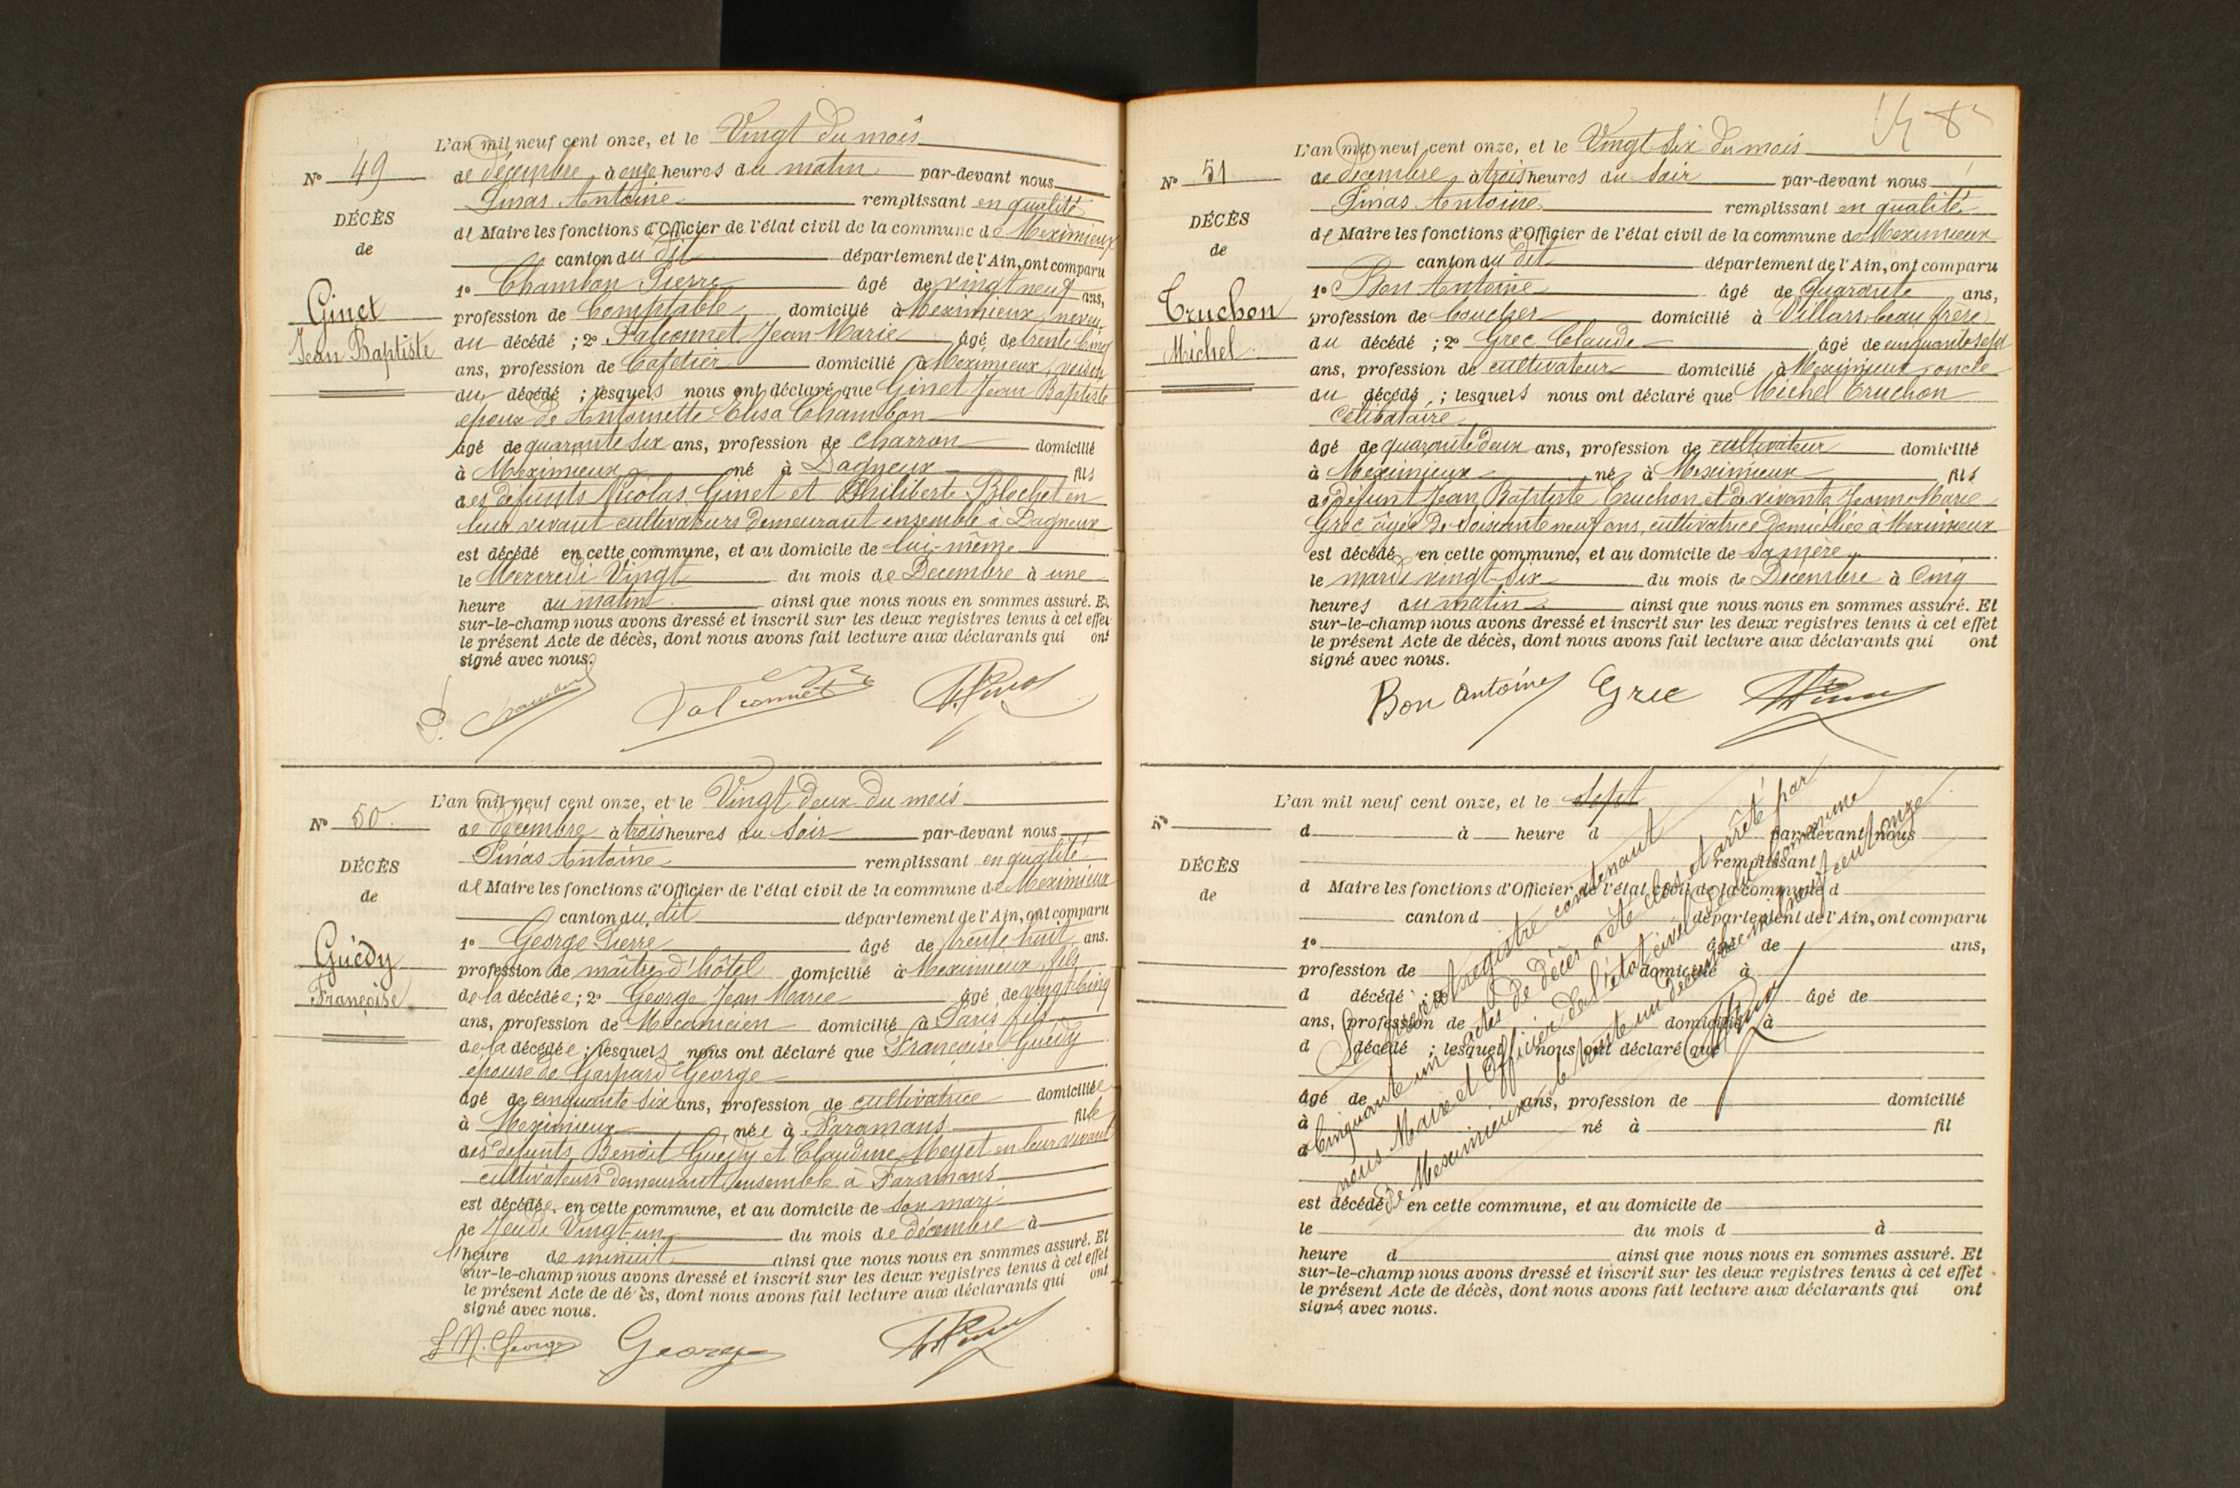 L'an mil neuf cent onze, et le Vingt du mois
N° 49
de décembre à onze heures du matin par-devant nous
Pinas Antoine remplissant en qualité
DÉCÈS
de Maire les fonctions d'Officier de l'état civil de la commune de Meximieux
de
canton du dit département de l'Ain, ont comparu
Ginet
Jean Baptiste
1° Chambon Pierre âgé de vingt neuf ans,
profession de Comptable domicilié à Meximieux, neveu
du décédé ; 2° Falconnet Jean Marie âgé de trente cinq
ans, profession de Cafetier domicilié à Meximieux, voisin
du décédé ; lesquels nous ont déclaré que Ginet Jean Baptiste
époux de Antoinette Elisa Chambon
âgé de quarante six ans, profession de charron domicilié
à Meximieux né à Dagneux fils
des défunts Nicolas Ginet et Philiberte Blochet en
leur vivant cultivateurs demeurant ensemble à Dagneux
est décédé en cette commune, et au domicile de lui-même
le Mercredi Vingt du mois de Décembre à une
heure du matin ainsi que nous nous en sommes assuré. Et
sur-le-champ nous avons dressé et inscrit sur les deux registres tenus à cet effet
le présent Acte de décès, dont nous avons fait lecture aux déclarants qui ont
signé avec nous.
P. Chambon Falconnet A. Pinas
L'an mil neuf cent onze, et le Vingt deux du mois
N° 50.
de décembre à trois heures du soir par-devant nous
Pinas Antoine remplissant en qualité
DÉCÈS
de Maire les fonctions d'Officier de l'état civil de la commune de Meximieux
de
canton du dit département de l'Ain, ont comparu
Guédy
Françoise
1° George Pierre âgé de trente huit ans.
profession de maître d'hôtel domicilié à Meximieux, fils
de la décédée ; 2° George Jean Marie âgé de vingt cinq
ans, profession de Mécanicien domicilié à Paris fils
de la décédée ; lesquels nous ont déclaré que Françoise Guédy
épouse de Gaspard George
âgé de cinquante six ans, profession de cultivatrice domiciliée
à Meximieux née à Faramans fille
des défunts Benoît Guédy et Claudine Meyet en leur vivant
cultivateurs demeurant ensemble à Faramans
est décédée en cette commune, et au domicile de son mari
le Jeudi Vingt-un du mois de décembre à
l'heure de minuit ainsi que nous nous en sommes assuré. Et
sur-le-champ nous avons dressé et inscrit sur les deux registres tenus à cet effet
le présent Acte de décès, dont nous avons fait lecture aux déclarants qui ont
signé avec nous.
J M. George George A. Pinas
L'an mil neuf cent onze, et le Vingt Six du mois
N° 51
de décembre à trois heures du soir par-devant nous
Pinas Antoine remplissant en qualité
DÉCÈS
de Maire les fonctions d'Officier de l'état civil de la commune de Meximieux
de
canton du dit département de l'Ain, ont comparu
Cruchon
Michel
1° Bon Antoine âgé de Quarante ans,
profession de boucher domicilié à Villars, beau frère
du décédé ; 2° Grec Claude âgé de cinquante sept
ans, profession de cultivateur domicilié à Meximieux, oncle
du décédé ; lesquels nous ont déclaré que Michel Cruchon
célibataire
âgé de quarante deux ans, profession de cultivateur domicilié
à Meximieux né à Meximieux fils
de défunt Jean Baptiste Cruchon et de vivante Jeanne Marie
Grec âgée de soixante neuf ans, cultivatrice domiciliée à Meximieux
est décédé en cette commune, et au domicile de sa mère
le mardi vingt-six du mois de Décembre à Cinq
heures du matin ainsi que nous nous en sommes assuré. Et
sur-le-champ nous avons dressé et inscrit sur les deux registres tenus à cet effet
le présent Acte de décès, dont nous avons fait lecture aux déclarants qui ont
signé avec nous.
Bon Antoine Grec A. Pinas
L'an mil neuf cent onze, et le sept
N°
d à heure d par-devant nous
remplissant
DÉCÈS
d Maire les fonctions d'Officier de l'état civil de la commune d
de
canton d département de l'Ain, ont comparu
1° âgé de ans,
profession de domicilié à
d décédé ; 2° âgé de
ans, profession de domicilié à
d décédé ; lesquel nous ont déclaré que
âgé de ans, profession de domicilié
à né à fil
d
est décédé en cette commune, et au domicile de
le du mois d à
heure d ainsi que nous nous en sommes assuré. Et
sur-le-champ nous avons dressé et inscrit sur les deux registres tenus à cet effet
le présent Acte de décès, dont nous avons fait lecture aux déclarants qui ont
signé avec nous.
Le présent registre contenant
Cinquante un actes de décès a été clos et arrêté par
nous Maire et Officier de l'état civil de la commune
de Meximieux le trente un décembre mil neuf cent onze
A. Pinas